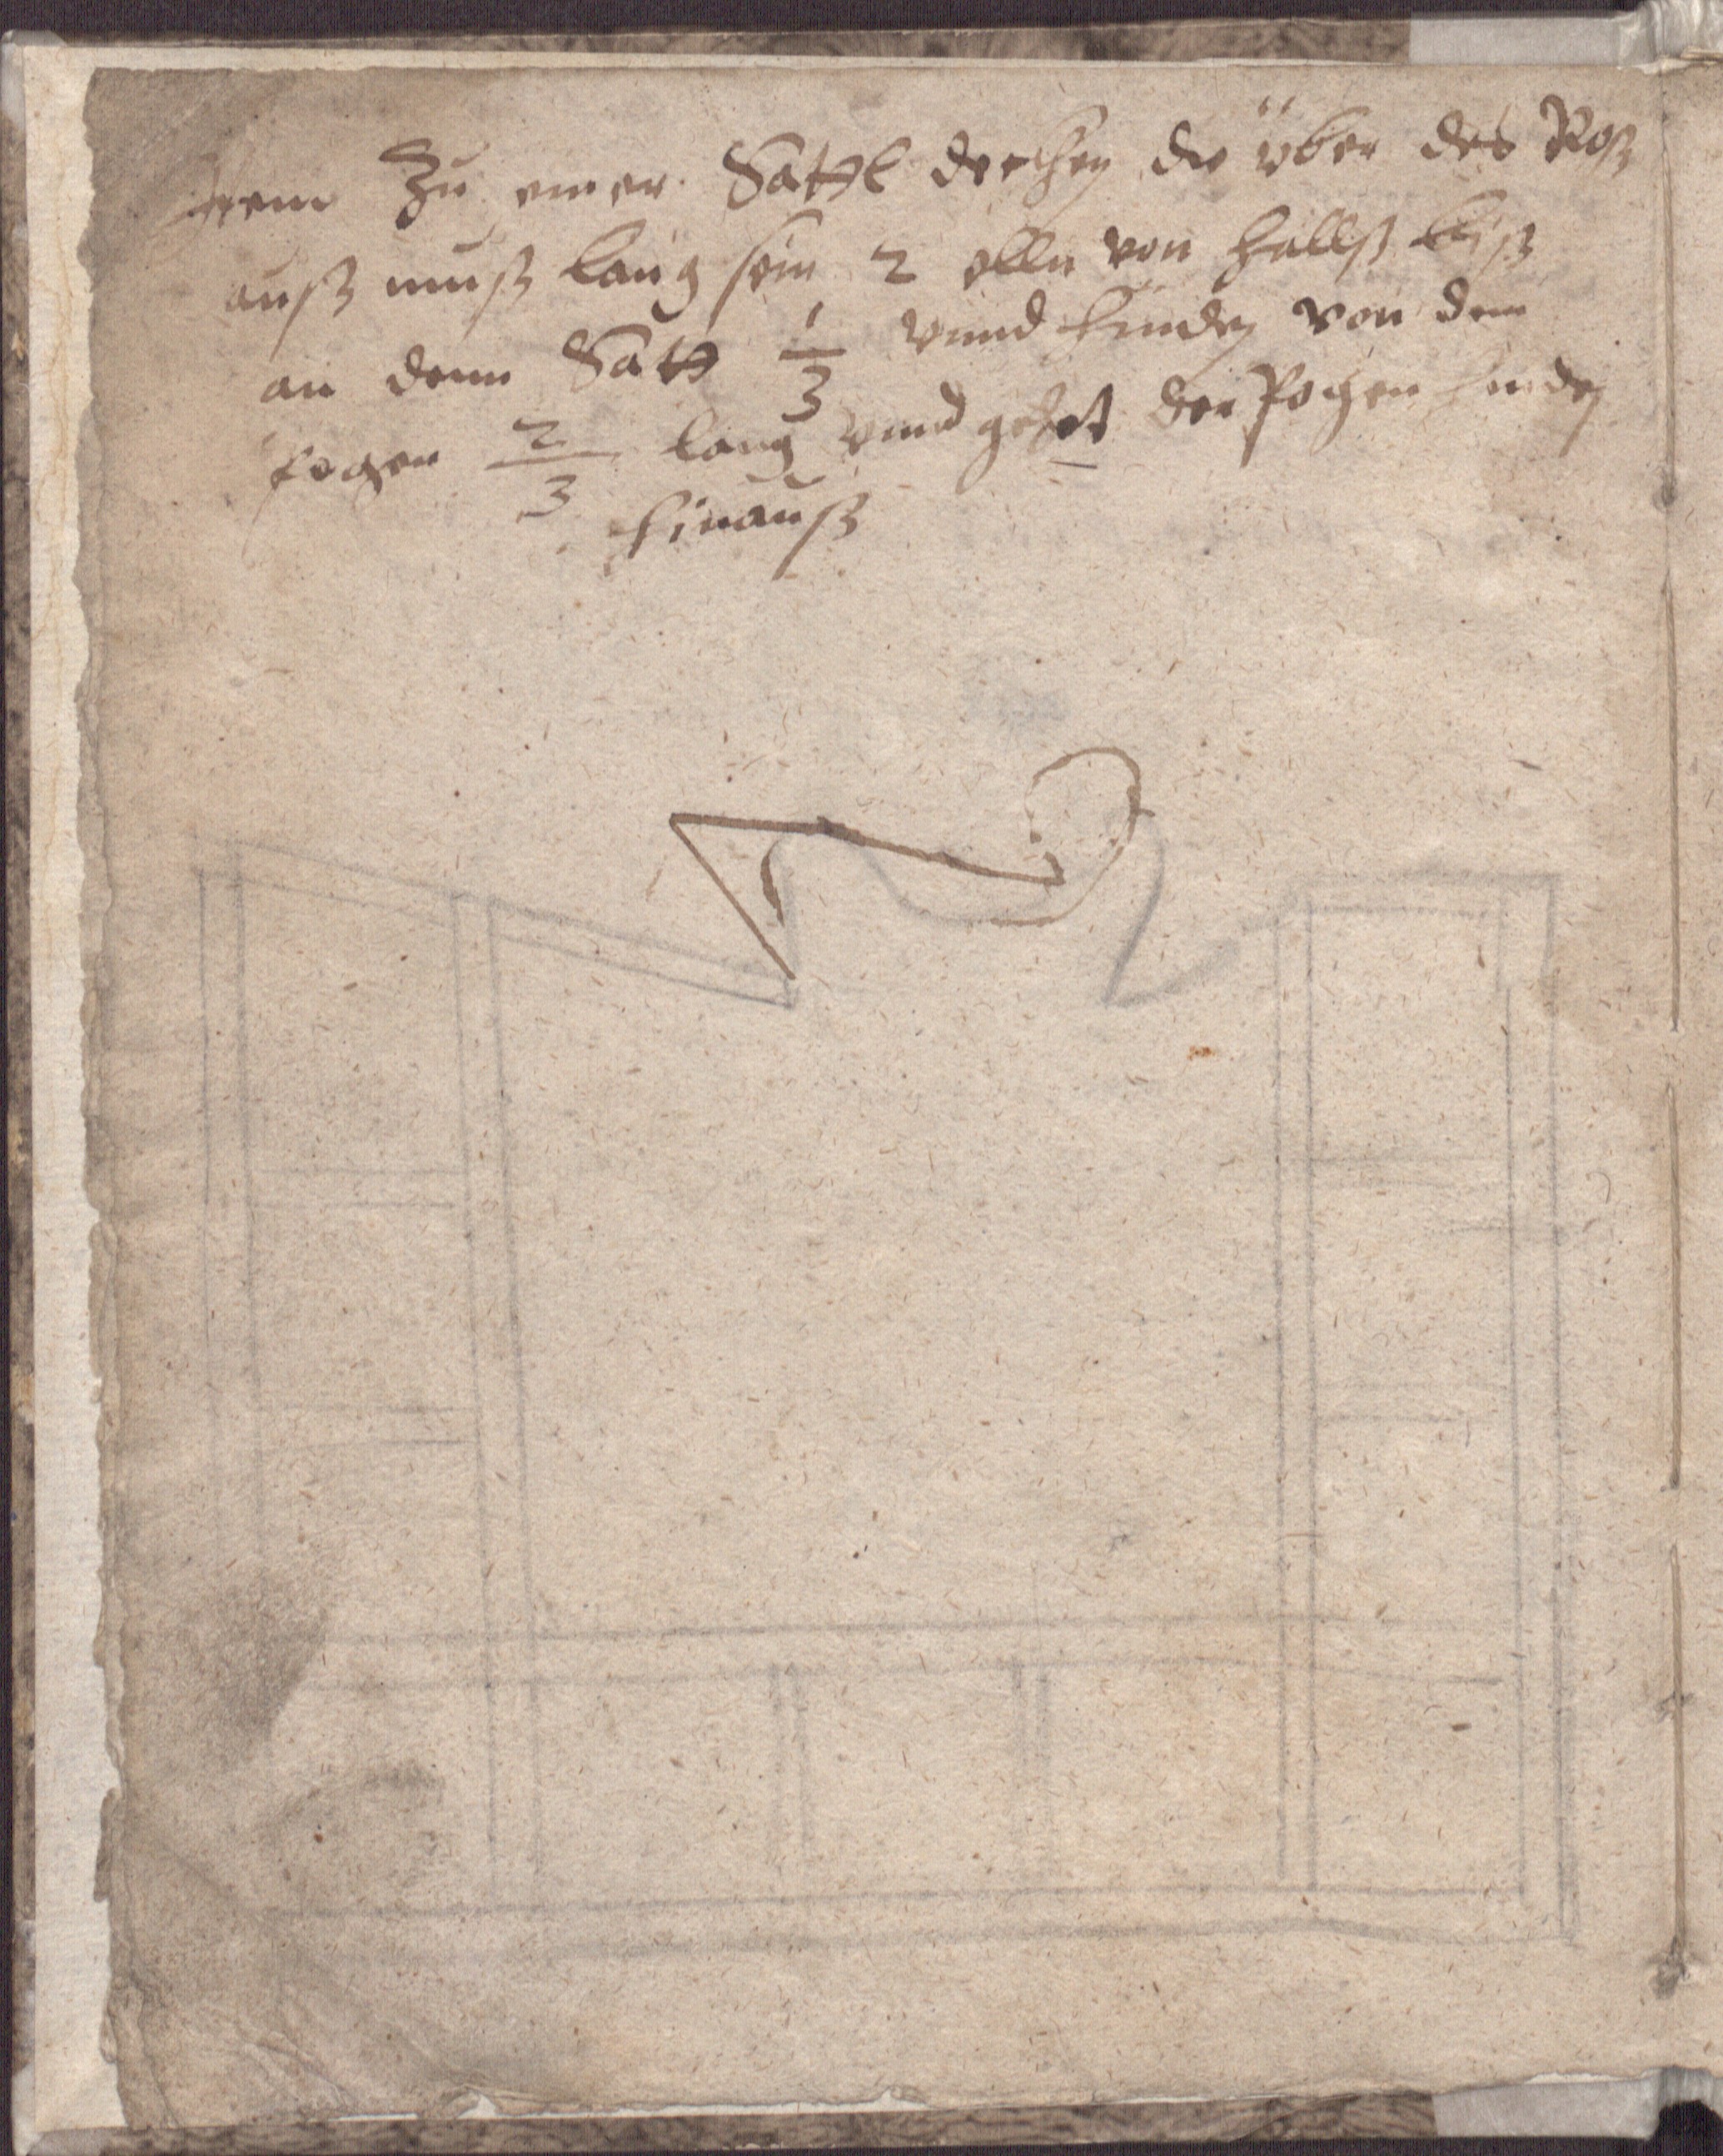 Item Zu einer Sattl deckhen die über des Roß
auß muß lang sein 2 elln von halß biß
an denn Satl 1/3 unnd hinden von dem
bogen 2/3 lang unnd gehet der Pogen hinden
hinauß